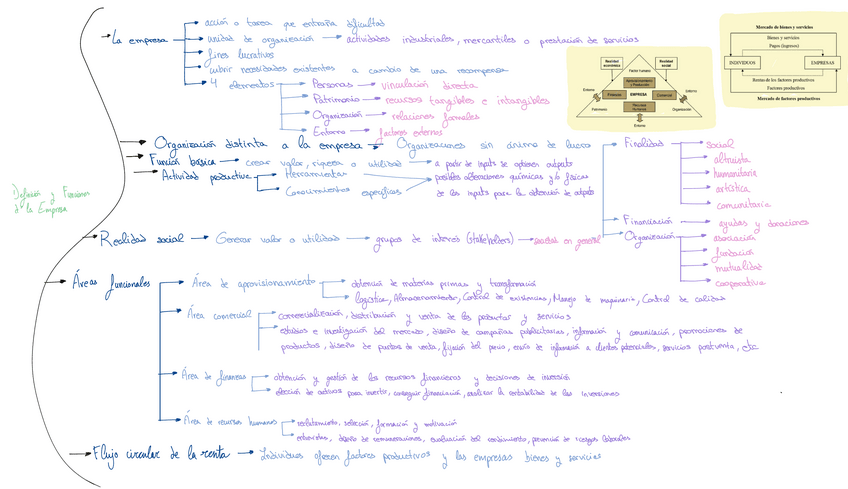 Definición y Funciones
de la Empresa
La empresa
acción o tarea que entraña dificultad
unidad de organización → actividades industriales, mercantiles o prestación de servicios
fines lucrativos
cubrir necesidades existentes a cambio de una recompensa
4 elementos
Personas → vinculación directa
Patrimonio → recursos tangibles e intangibles
Organización → relaciones formales
Entorno → factores externos
Realidad económica
Realidad social
Factor humano
Aprovisionamiento y Producción
Financia
EMPRESA
Comercial
Recursos Humanos
Entorno
Entorno
Patrimonio
Organización
Entorno
Mercado de bienes y servicios
Bienes y servicios
Pagos (ingresos)
INDIVIDUOS
EMPRESAS
Rentas de los factores productivos
Factores productivos
Mercado de factores productivos
Organización distinta a la empresa → Organizaciones sin ánimo de lucro
Finalidad
social
altruista
humanitaria
artística
comunitaria
Financiación → ayudas y donaciones
Organización
asociación
fundación
mutualidad
cooperativa
Función básica → crear valor, riqueza o utilidad → a partir de inputs se obtienen outputs
Actividad productiva
Herramientas
Conocimientos específicos
posibles alteraciones químicas y/o físicas
de los inputs para la obtención de outputs
Realidad social → Generar valor o utilidad → grupos de interés (stakeholders) → sociedad en general
Áreas funcionales
Área de aprovisionamiento
obtención de materias primas y transformación
logística, Almacenamiento, Control de existencias, Manejo de maquinaria, Control de calidad
Área comercial
comercialización, distribución y venta de los productos y servicios
estudios e investigación del mercado, diseño de campañas publicitarias, información y comunicación, promociones de
productos, diseño de puntos de venta, fijación del precio, envío de información a clientes potenciales, servicios postventa, etc
Área de finanzas
obtención y gestión de los recursos financieros y decisiones de inversión
elección de activos para invertir, conseguir financiación, analizar la rentabilidad de las inversiones
Área de recursos humanos
reclutamiento, selección, formación y motivación
entrevistas, diseño de remuneraciones, evaluación del rendimiento, prevención de riesgos laborales
Flujo circular de la renta → Individuos ofrecen factores productivos y las empresas bienes y servicios